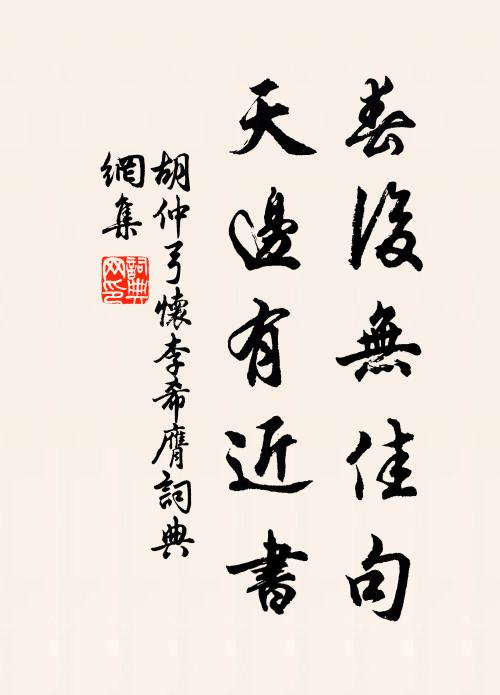 春後無佳句
天邊有近書
胡仲弓懷李希膺詞典
網集
詞典
網印